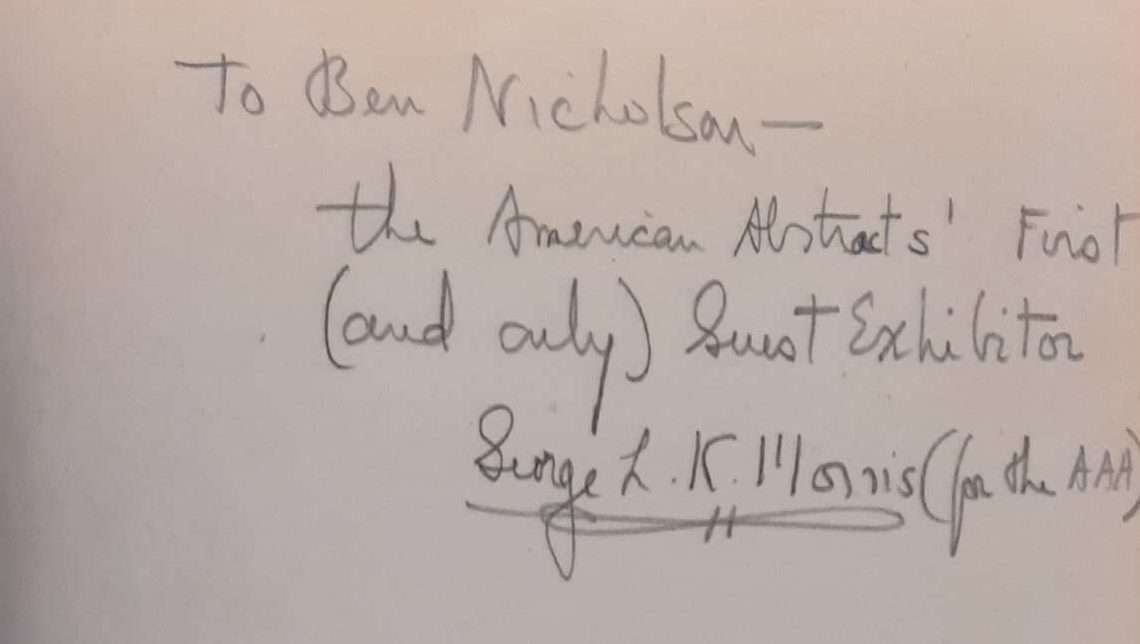 To Ben Nicholson —
the American Abstracts' First
(and only) Guest Exhibitor
George L.K. Morris (for the AAA)